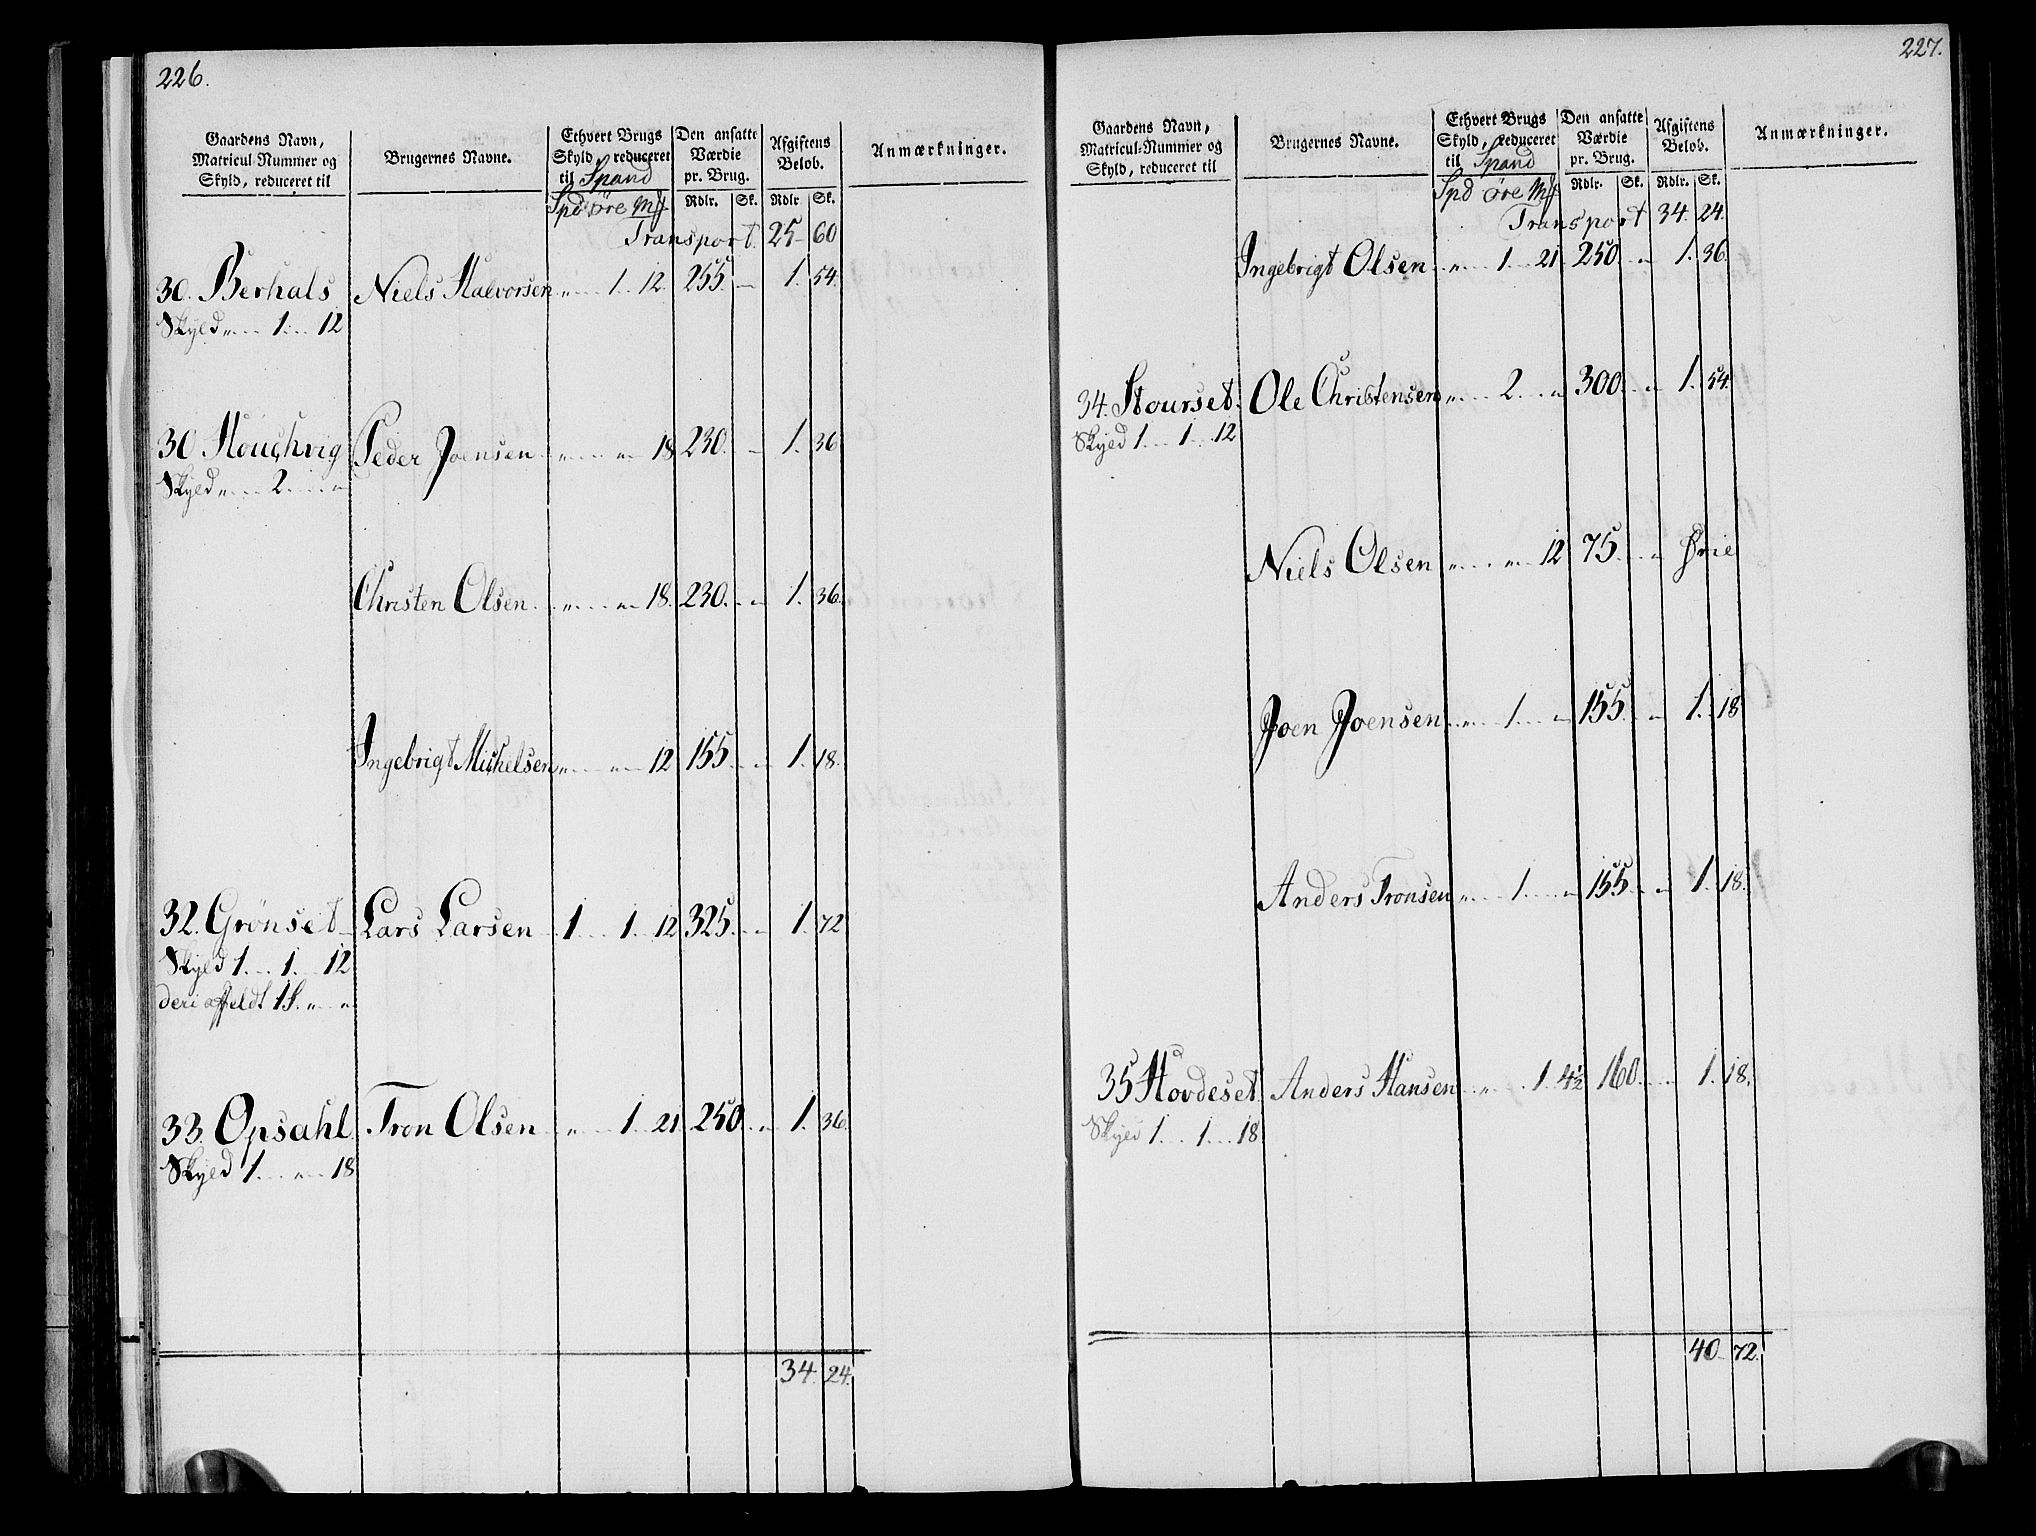 226.
Gaardens Navn, Matricul-Nummer og Skyld, reduceret til | Brugernes Navne. | Ethvert Brugs Skyld, reduceret til Spand | Den ansatte Værdie pr. Brug. | Afgiftens Beløb. | Anmærkninger.
Spd øre Mk | Rdlr. Sk. | Rdlr Sk.
Transport 25 60
30. Berhals Niels Halvorsen „ 1 12 255 — 1. 54.
Skyld „ 1 12
30 Houchvig Peder Joensen „ „ 18 230. — 1. 36
Skyld „ 2 „
Christen Olsen „ „ 18. 230. „ 1. 36.
Ingebrigt Michelsen „ „ 12 155 „ 1. 18.
32. Grönset Lars Larsen 1 1 12 325. „ 1. 72
Skyld 1 1. 12
deri
33. Opsahl Tron Olsen „ 1 21 250 „ 1. 36.
Skyld 1 „ 18
34. 24.
227.
Gaardens Navn, Matricul-Nummer og Skyld, reduceret til | Brugernes Navne. | Ethvert Brugs Skyld, reduceret til Spand | Den ansatte Værdie pr. Brug. | Afgiftens Beløb. | Anmærkninger.
Spd øre Mk | Rdlr. Sk. | Rdlr. Sk.
Transport 34. 24.
Ingebrigt Olsen „ 1 21 250 „ 1. 36.
34. Stourset. Ole Christensen „ 2 „ 300 „ 1. 54.
Skyld 1 1 12
Niels Olsen „ „ 12 75 „ frie
Joen Joensen „ 1 „ 155 „ 1. 18
Anders Tronsen „ 1. „ 155 „ 1. 18.
35 Hovdeset. Anders Hansen „ 1 4½ 160 1. 18.
Skyld 1 1 18
40 72.